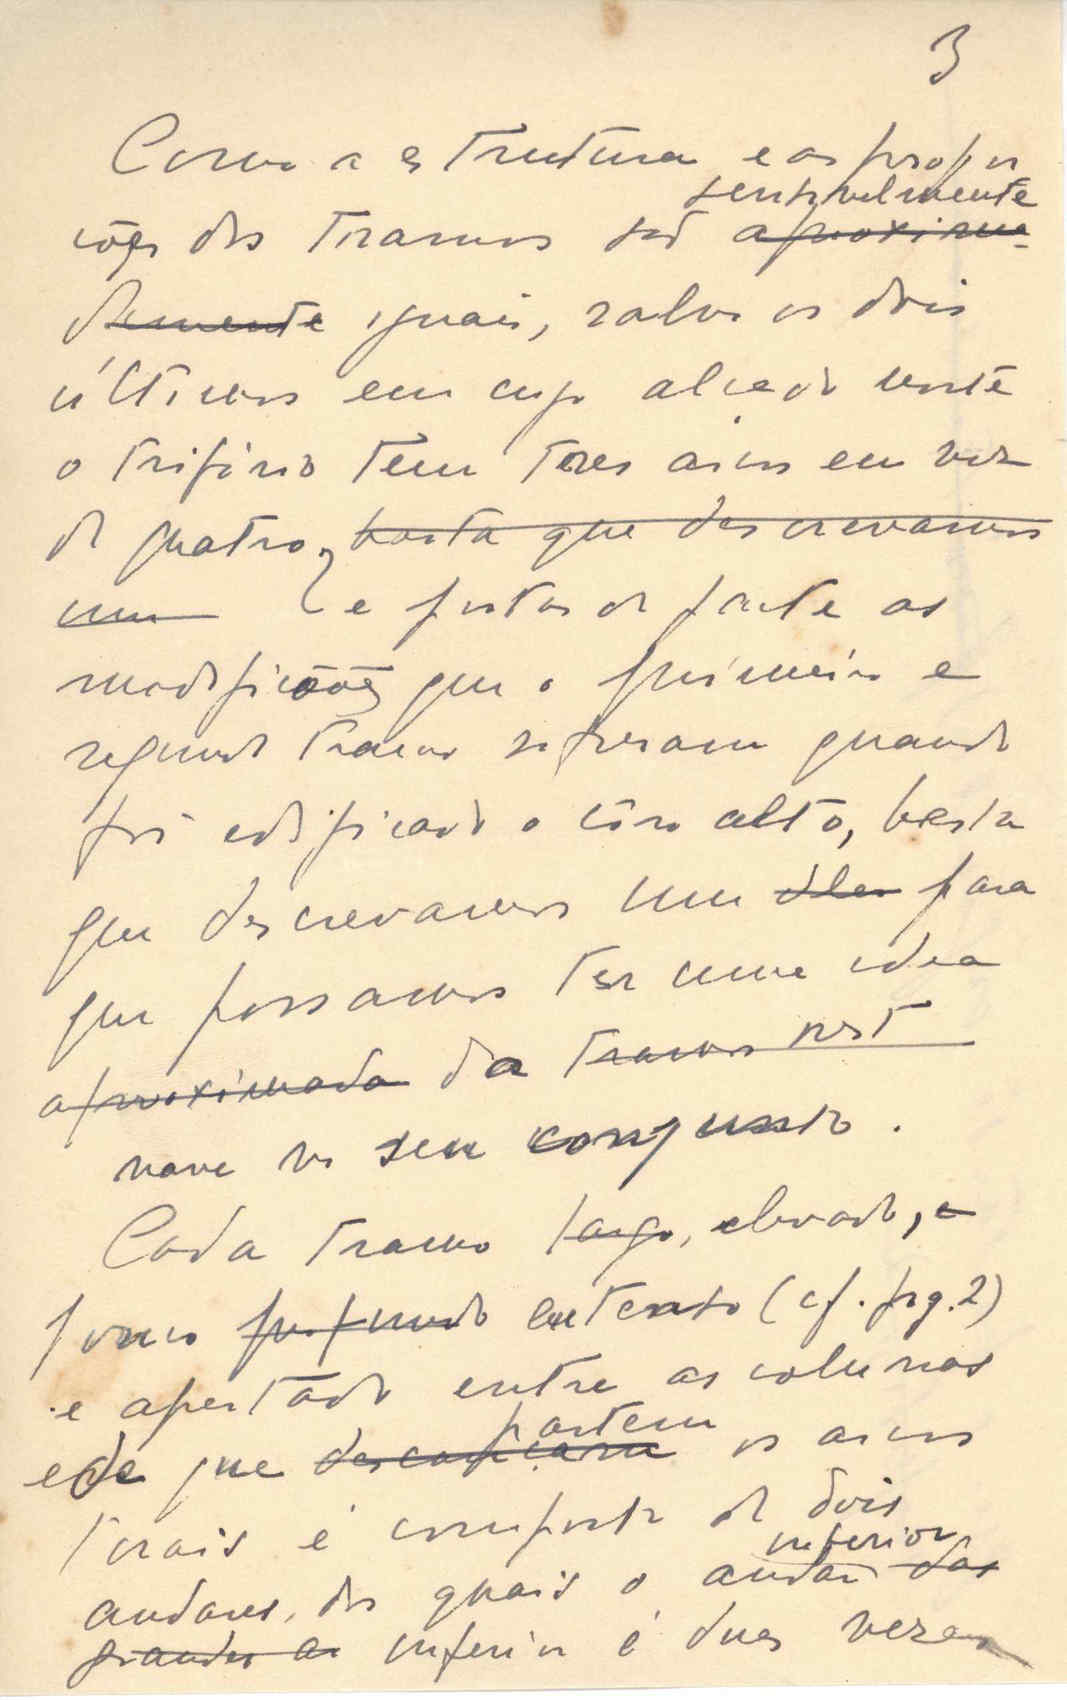 3
Como a estrutura e as propor
sensivelmente
ções dos tramos são aproxima-
damente iguais, salvo os dois
últimos em cujo alçado norte
o trifório tem tres arcos em vez
de quatro, basta que descrevamos
um e postas de parte as
modificações que o primeiro e
segundo tramo sofreram quando
foi edificado o côro alto, basta
que descrevamos um deles para
que possamos ter uma idea
aproximada da tramos nest
nave no seu conjunto.
Cada tramo largo, elevado, e
pouco profundo (cf. fig. 2)
e apertado entre as colunas
e de que descançam os arcos
partem
torais é composto de dois
inferior
andares, dos quais o andar das
grandes ar inferior é duas vezes